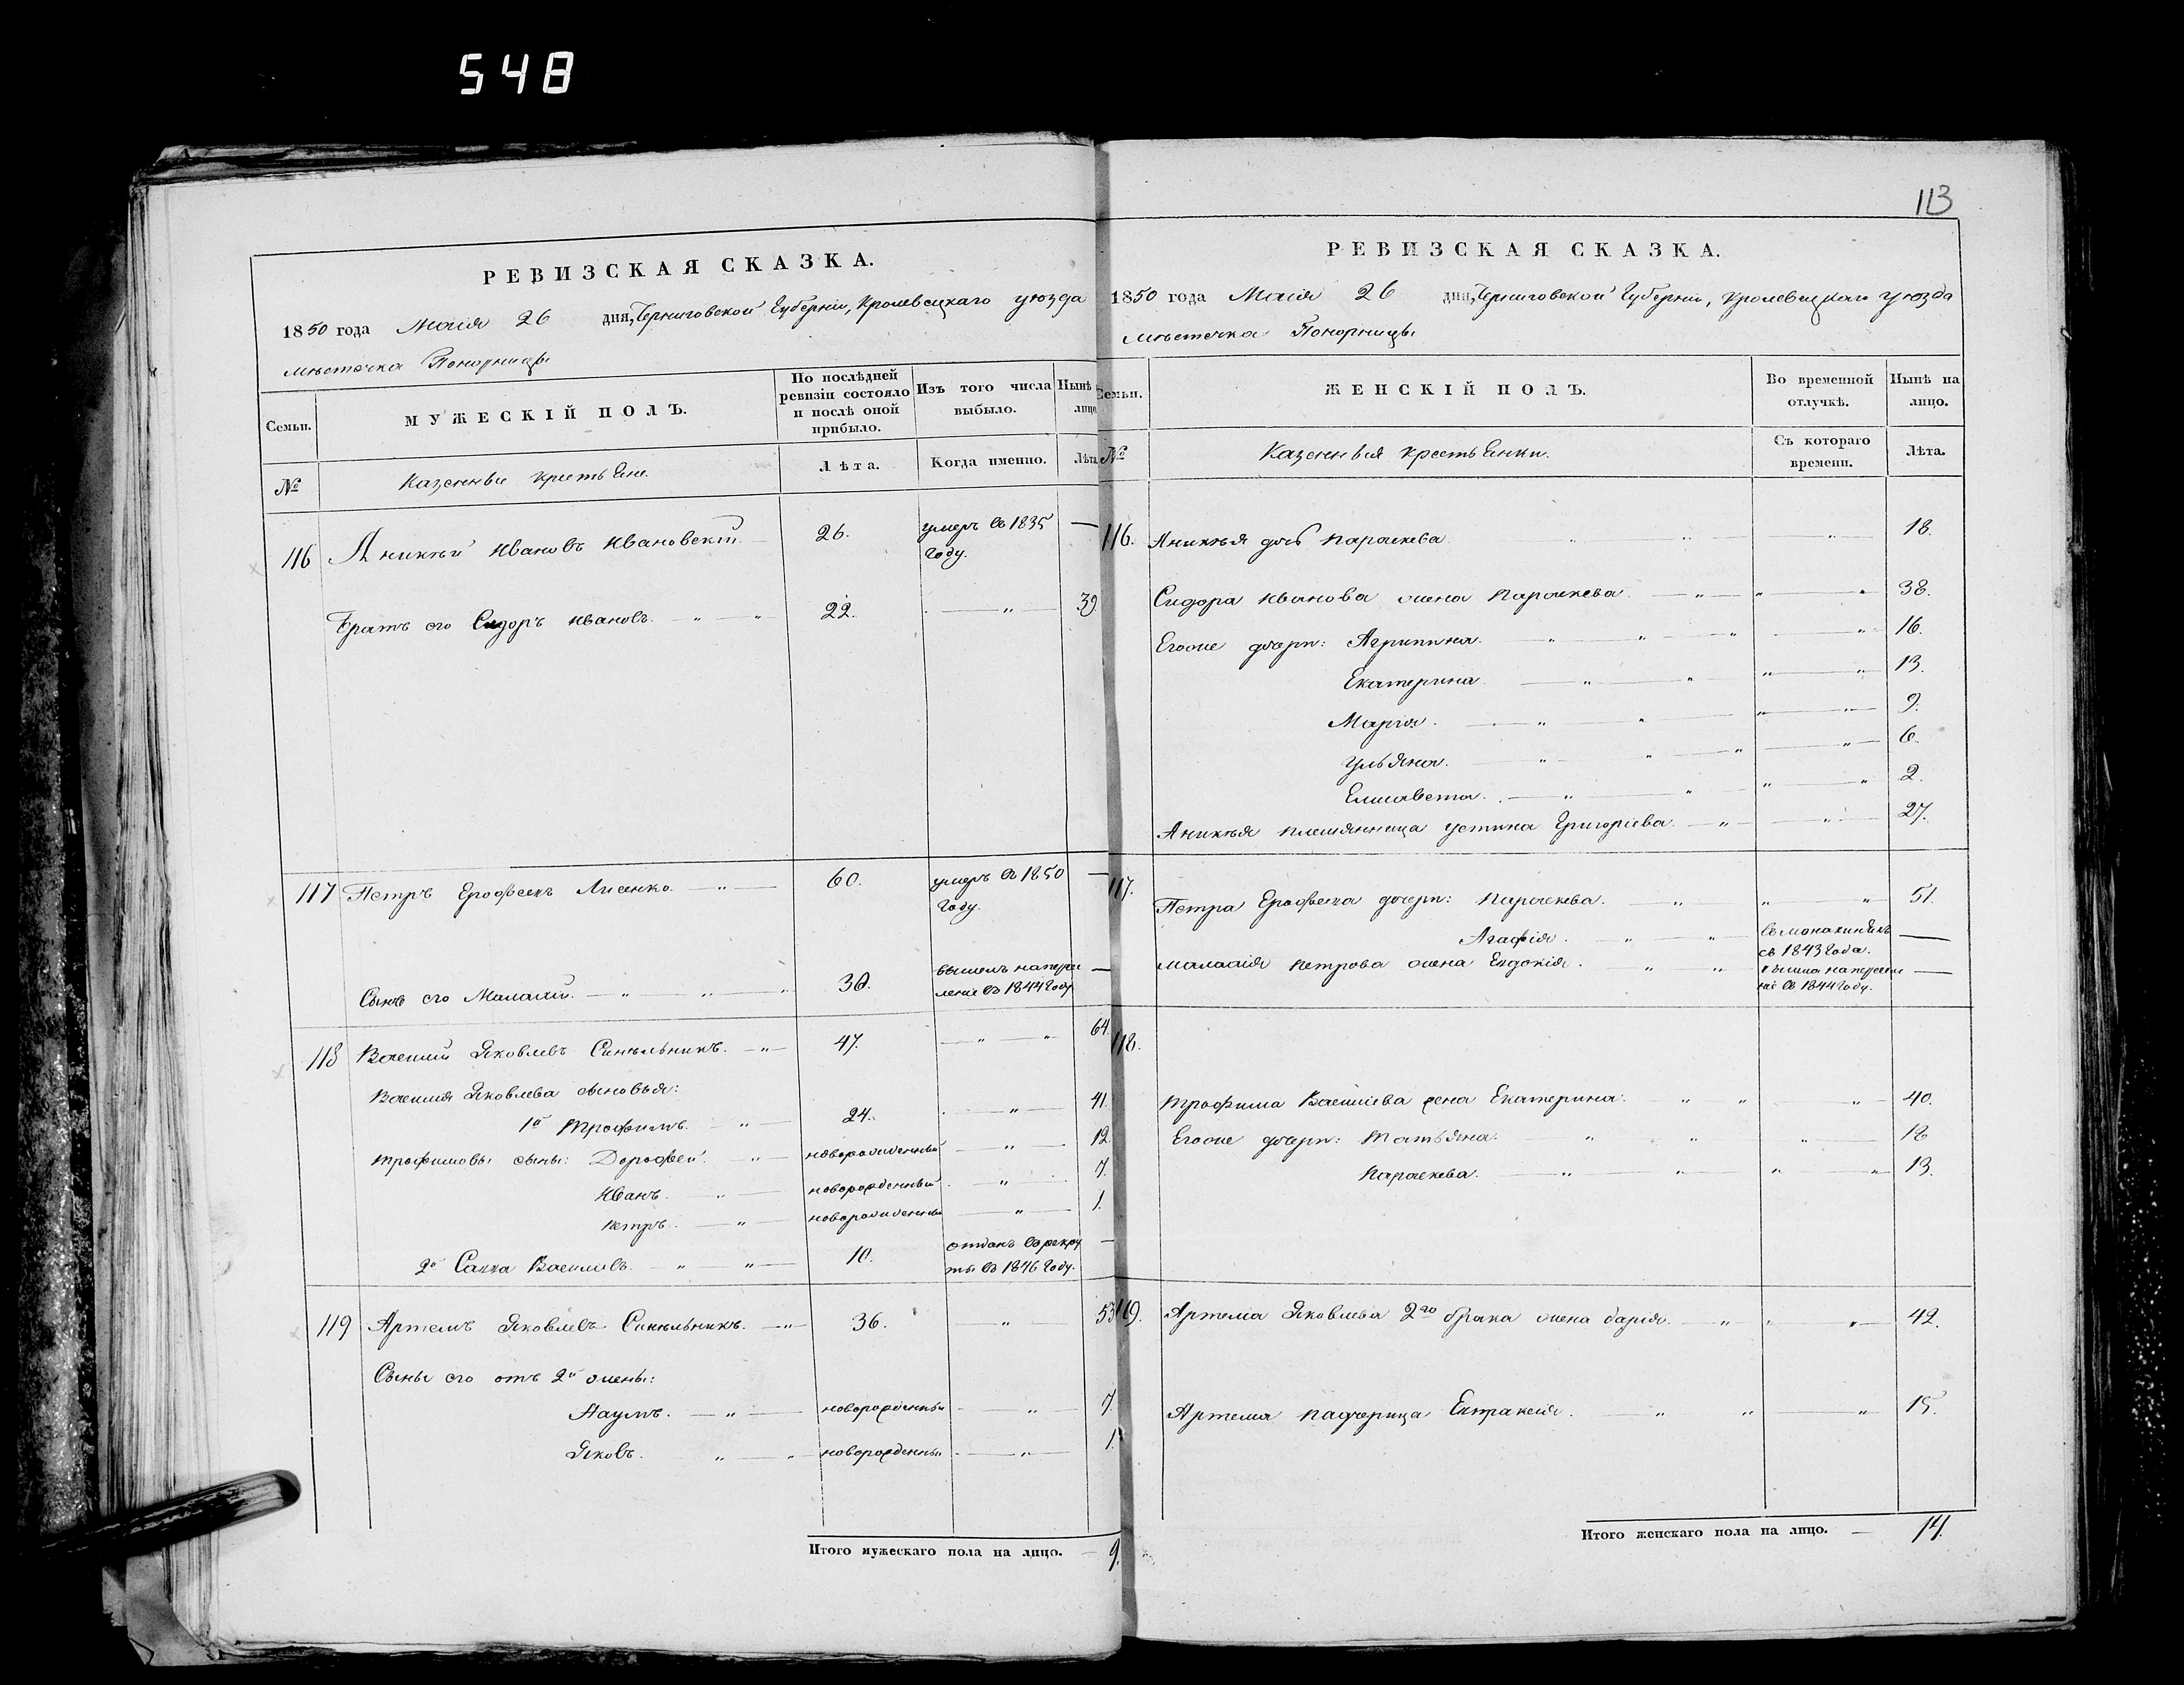 548
113
РЕВИЗСКАЯ СКАЗКА.
1850 года Маія 26 дня, Черниговской Губерніи, Кролевецкаго уюзда
мѣстечка Понорницы
Семьи.
МУЖЕСКІЙ ПОЛЪ.
По послѣдней ревизіи состояло и послѣ оной прибыло.
Изъ того числа выбыло.
Нынѣ лицо
№
Казенные крестьяне.
Лѣта.
Когда именно.
Лѣта
116 Аникѣй Ивановъ Ивановскій. 26. умеръ въ 1835 —
году.
Братъ его Сидоръ Ивановъ. 22. 39
117 Петръ Ерофеевъ Лисенко. 60. умеръ въ 1850 —
году.
Сынъ его Малахій. 30. вышелъ на пересе —
леніе въ 1844 году
118 Василій Яковлевъ Синельникъ. 47. 64.
Василія Яковлева сыновья:
1й Трофимъ. 24. 41.
Трофимовы сыны: Дорофей. новорожденный 12.
Иванъ. новорожденный 7.
Петръ. новорожденный 1.
2й Савва Васильевъ. 10. отданъ въ рекру —
ты въ 1846 году.
119 Артемъ Яковлевъ Синельникъ. 36. 53
Сыны его отъ 2й жены:
Наумъ. новорожденный 7.
Яковъ. новорожденный 1.
Итого мужескаго пола на лицо. — 9.
РЕВИЗСКАЯ СКАЗКА.
1850 года Маія 26 дня, Черниговской Губерніи, Кролевецкаго уюзда
мѣстечка Понорницы
Семьи.
ЖЕНСКІЙ ПОЛЪ.
Во временной отлучкѣ.
Нынѣ на лицо.
№
Казенныя крестьянки.
Съ котораго времени.
Лѣта.
116. Аникѣя дочь Параскева 18.
Сидора Иванова жена Параскева. 38.
Егоже дочери: Агрипина. 16.
Екатерина. 13.
Марія. 9.
Ульяна. 6.
Елисавета. 2.
Аникѣя племянница Устина Григоріева. 27.
117. Петра Ерофеева дочери: Параскева. 51.
Агафія. въ монахиняхъ —
съ 1843 года.
Малахія Петрова жена Евдокія. вышла на переселе —
ніе въ 1844 году.
118.
Трофима Васильева жена Екатерина. 40.
Егоже дочери: Татьяна. 18
Параскева. 13.
119. Артема Яковлева 2го брака жена Дарія. 42.
Артема падчерица Евпраксія. 15.
Итого женскаго пола на лицо. — 14.